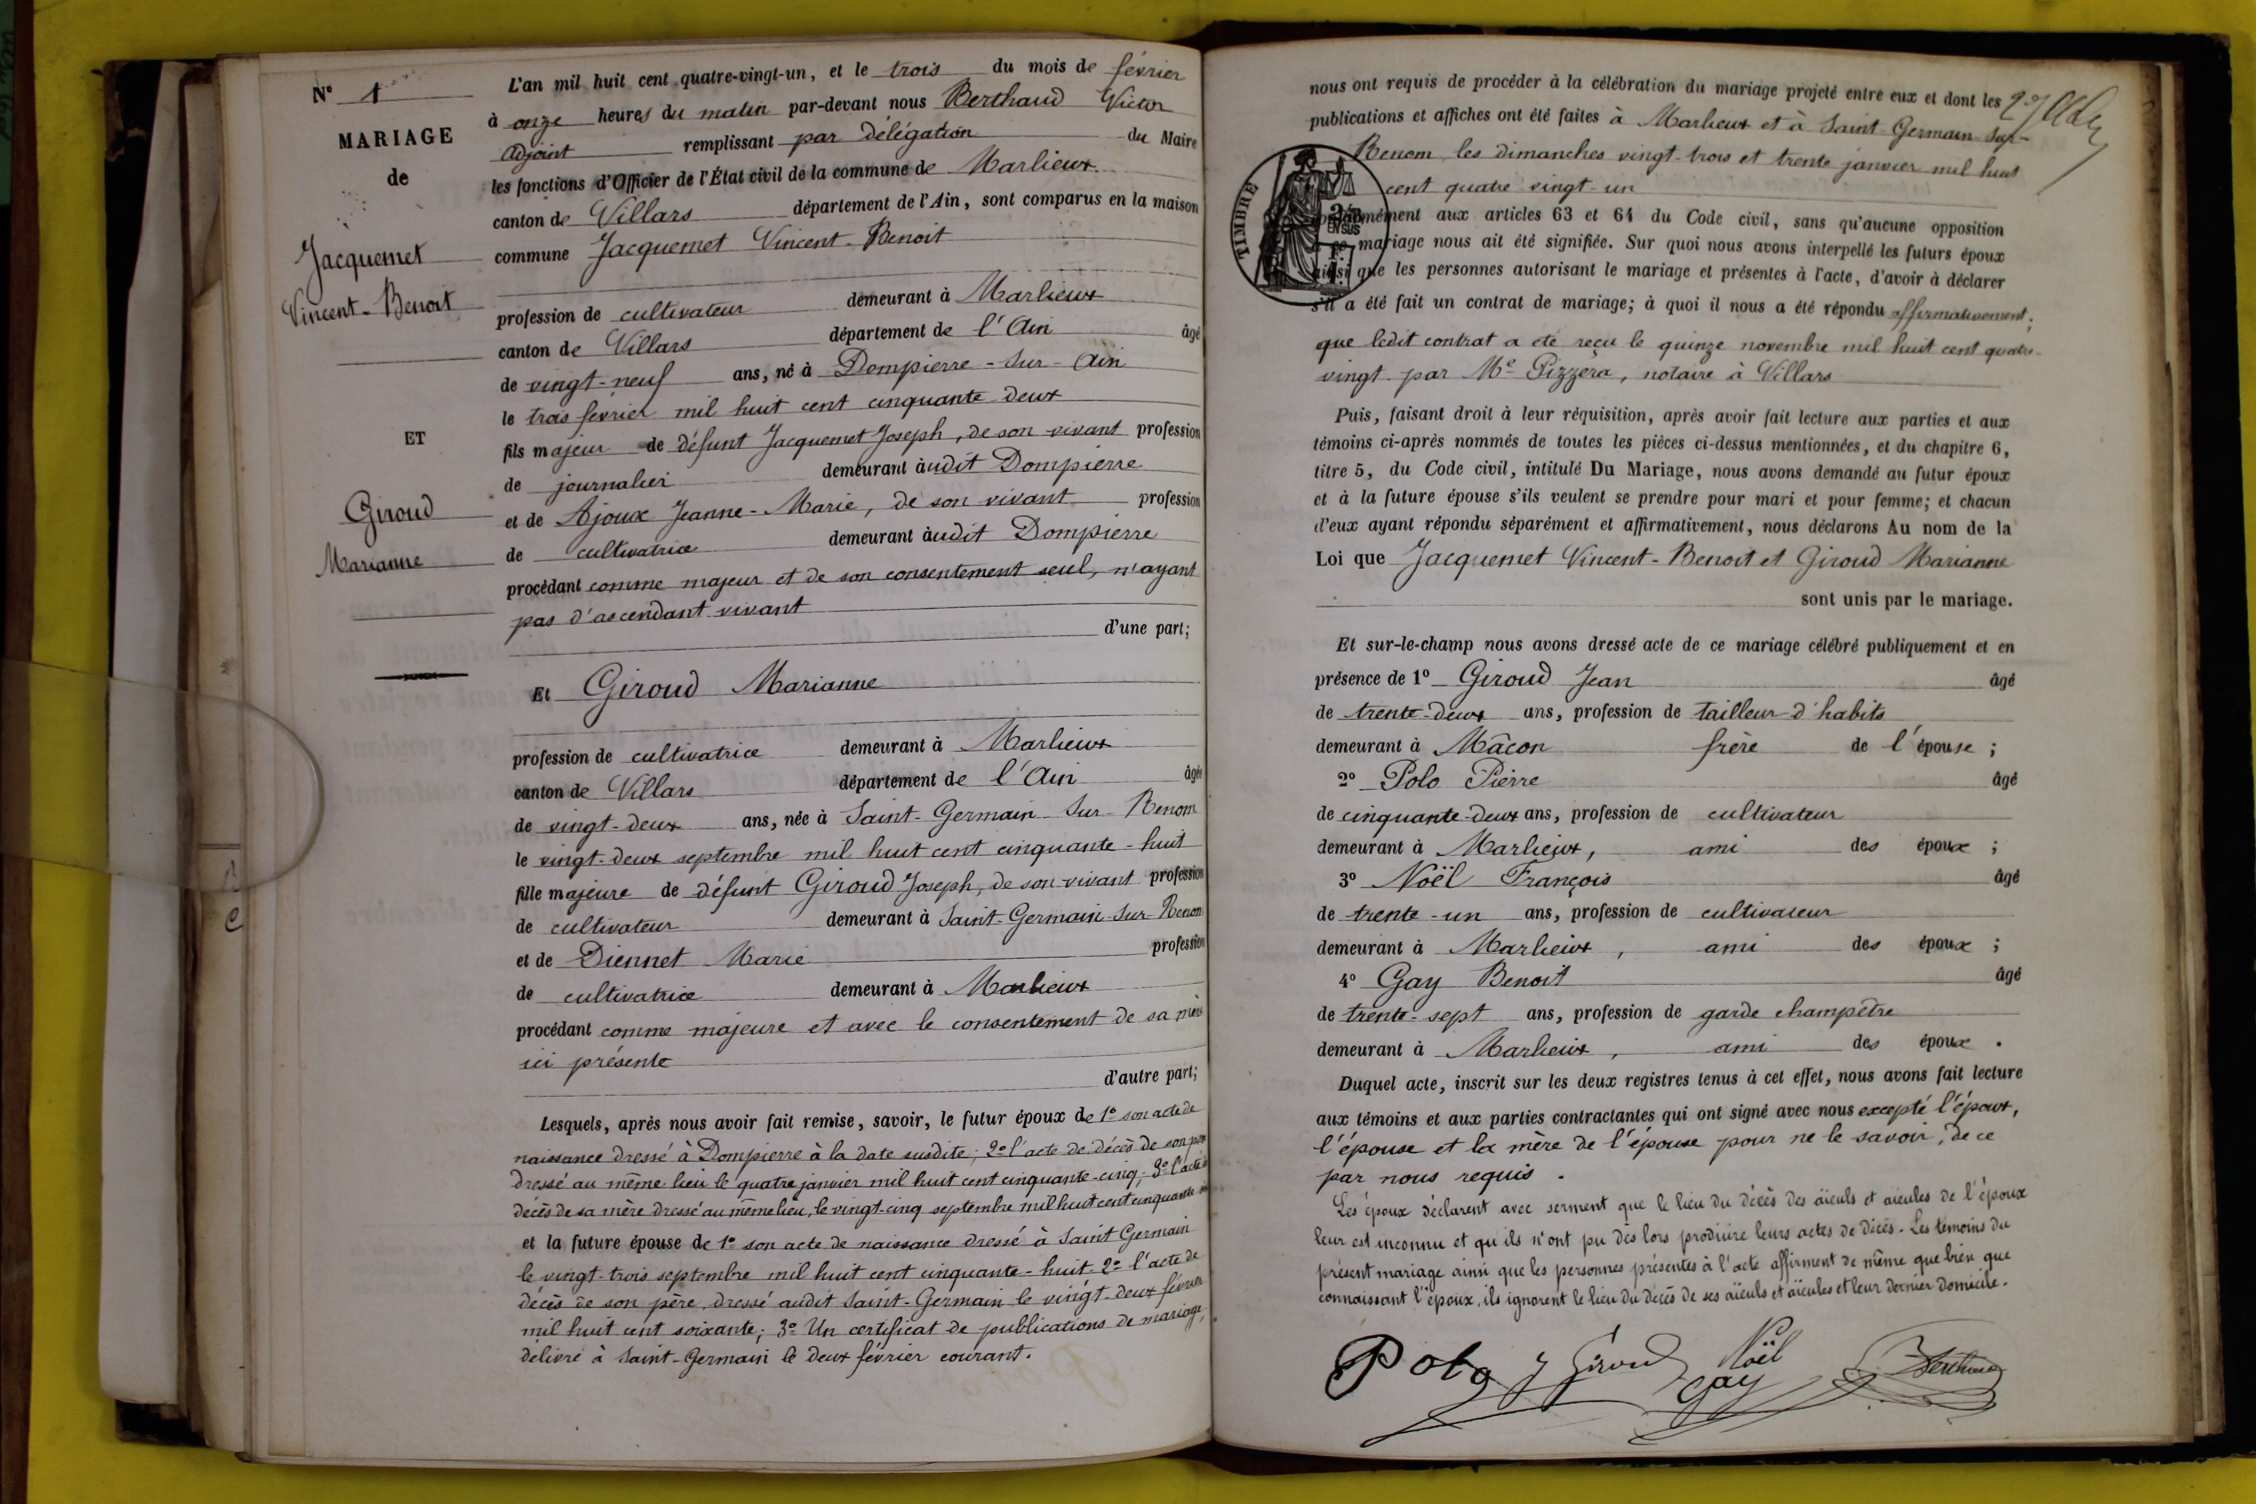 N° 1
MARIAGE
de
Jacquemet
Vincent-Benoit
ET
Giroud
Marianne
L'an mil huit cent quatre-vingt-un, et le trois du mois de février
à onze heures du matin par-devant nous Berthaud Victor
adjoint remplissant par délégation du Maire
les fonctions d'Officier de l'État civil de la commune de Marlieux
canton de Villars département de l'Ain, sont comparus en la maison
commune Jacquemet Vincent-Benoit
profession de cultivateur demeurant à Marlieux
canton de Villars département de l'Ain âgé
de vingt-neuf ans, né à Dompierre-sur-Ain
le trois février mil huit cent cinquante deux
fils majeur de défunt Jacquemet Joseph, de son vivant profession
de journalier demeurant àudit Dompierre
et de Ajoux Jeanne-Marie, de son vivant profession
de cultivatrice demeurant àudit Dompierre
procédant comme majeur et de son consentement seul, n'ayant
pas d'ascendant vivant
d'une part;
Et Giroud Marianne
profession de cultivatrice demeurant à Marlieux
canton de Villars département de l'Ain âgée
de vingt-deux ans, née à Saint-Germain-Sur-Renom
le vingt-deux septembre mil huit cent cinquante-huit
fille majeure de défunt Giroud Joseph, de son vivant profession
de cultivateur demeurant à Saint-Germain-Sur-Renom
et de Diennet Marie profession
de cultivatrice demeurant à Marlieux
procédant comme majeure et avec le consentement de sa mère
ici présente
d'autre part;
Lesquels, après nous avoir fait remise, savoir, le futur époux de 1° son acte de
naissance dressé à Dompierre à la date susdite; 2° l'acte de décès de son père
dressé au même lieu le quatre janvier mil huit cent cinquante-cinq; 3° l'acte de
décès de sa mère dressé au même lieu, le vingt-cinq septembre mil huit cent cinquante
et la future épouse de 1° son acte de naissance dressé à Saint Germain
le vingt-trois septembre mil huit cent cinquante-huit 2° l'acte de
décès de son père, dressé audit Saint-Germain le vingt-deux février
mil huit cent soixante; 3° Un certificat de publications de mariage,
délivré à Saint-Germain le deux février courant.
nous ont requis de procéder à la célébration du mariage projeté entre eux et dont les
publications et affiches ont été faites à Marlieux et à Saint-Germain-Sur-
Renom, les dimanches vingt-trois et trente janvier mil huit
cent quatre vingt-un
TIMBRE
EN SUS
conformément aux articles 63 et 64 du Code civil, sans qu'aucune opposition
à ce mariage nous ait été signifiée. Sur quoi nous avons interpellé les futurs époux
ainsi que les personnes autorisant le mariage et présentes à l'acte, d'avoir à déclarer
s'il a été fait un contrat de mariage; à quoi il nous a été répondu affirmativement;
que ledit contrat a été reçu le quinze novembre mil huit cent quatre-
vingt par Me Pizzera, notaire à Villars
Puis, faisant droit à leur réquisition, après avoir fait lecture aux parties et aux
témoins ci-après nommés de toutes les pièces ci-dessus mentionnées, et du chapitre 6,
titre 5, du Code civil, intitulé Du Mariage, nous avons demandé au futur époux
et à la future épouse s'ils veulent se prendre pour mari et pour femme; et chacun
d'eux ayant répondu séparément et affirmativement, nous déclarons Au nom de la
Loi que Jacquemet Vincent-Benoit et Giroud Marianne
sont unis par le mariage.
Et sur-le-champ nous avons dressé acte de ce mariage célébré publiquement et en
présence de 1° Giroud Jean âgé
de trente-deux ans, profession de tailleur d'habits
demeurant à Mâcon frère de l'épouse ;
2° Polo Pierre âgé
de cinquante-deux ans, profession de cultivateur
demeurant à Marlieux, ami des époux ;
3° Noël François âgé
de trente-un ans, profession de cultivateur
demeurant à Marlieux, ami des époux ;
4° Gay Benoit âgé
de trente-sept ans, profession de garde champêtre
demeurant à Marlieux, ami des époux .
Duquel acte, inscrit sur les deux registres tenus à cet effet, nous avons fait lecture
aux témoins et aux parties contractantes qui ont signé avec nous excepté l'époux,
l'épouse et la mère de l'épouse pour ne le savoir, de ce
par nous requis .
Les époux déclarent avec serment que le lieu du décès des aïeuls et aïeules de l'époux
leur est inconnu et qu'ils n'ont pu dès lors produire leurs actes de décès. Les témoins du
présent mariage ainsi que les personnes présentes à l'acte affirment de même que bien que
connaissant l'époux, ils ignorent le lieu du décès de ses aïeuls et aïeules et leur dernier domicile.
Polo J Giroud Noël
Gay Berthaud